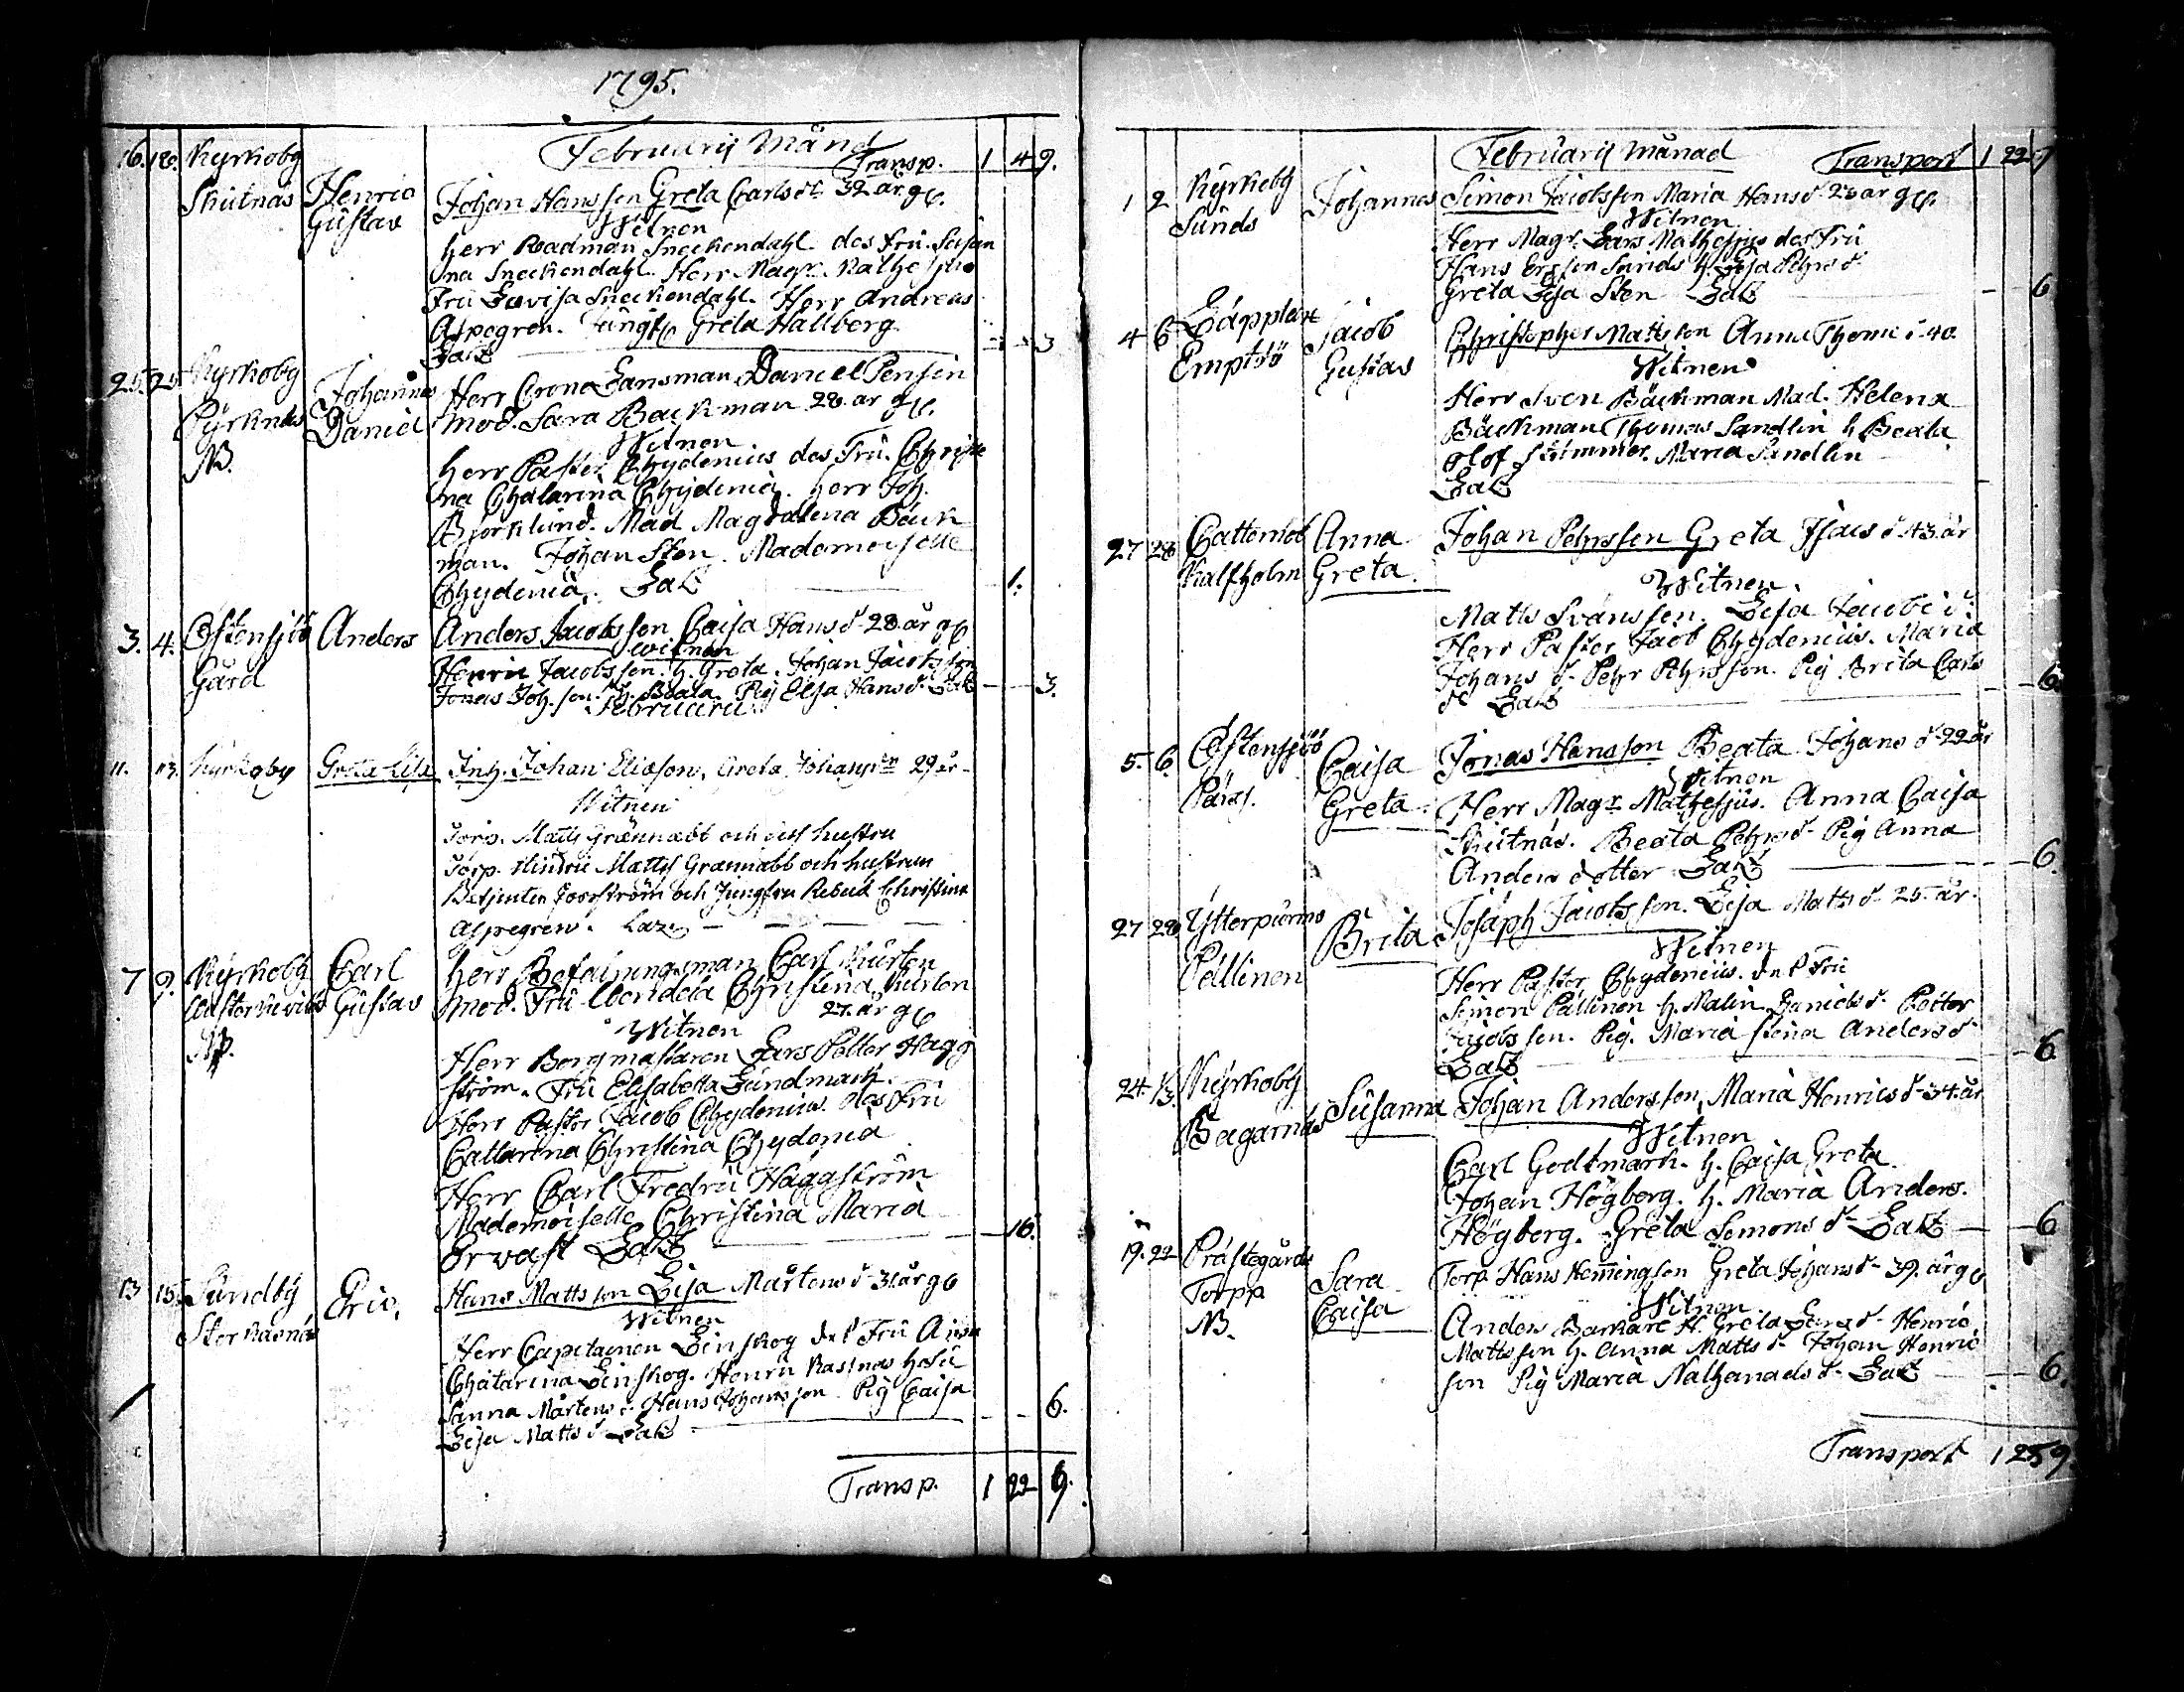 1795.
Februarij Månd
Transp. 1 4 9.
16. 18. Kyrkoby
Skutnäs Henric Gustav Johan Hansson Greta Carlsdr 32 år g.
Witnen
Herr Roadman Sneckendahl des Fru Susan
na Sneckendahl. Herr Magr. Mathesius
Fru Lovisa Sneckendahl. Herr Andreas
Aspegren. Jungf Greta Hallberg.
Lact 3
25. 25 Kyrkoby Johannes Herr Crono Lansman Daniel
Daniel Mod. Sara Backman 28 år g.
NB. Witnen
Herr Pastor Chydenius des Fru Christi
na Chatarina Chydenia. Herr Joh.
Björklund. Mad Magdalena Back
man. Johan Sten. Mademoiselle
Chydenia. Lact 1.
3. 4. Östensjö Anders Anders Jacobsson Caisa Hansd. 28 år g
Gård Witnen
Henric Jacobsson. h. Greta. Johan Jacobsson
Jonas Joh.son. h. Beata. Pig Elsa Hansd. Lact 3.
Februarii
11. 13. Kyrkoby Greta Lisa Inh. Johan Eliasson, Greta 29 år
Witnen
Torp. Matts Grannabb och dess hustru
Torp. Hindric Matts Grannabb och hustrun
Betjenten och Jungfru Christina
Aspegren. Lact
7 9. Kyrkoby Carl Herr Befalningsman Carl
NB. Gustav Mod. Fru Christina
27. år g
Witnen
Herr Borgmästaren Lars Petter Hägg
ström. Fru Elisabetta Lundmark.
Herr Pastor Jacob Chydenius des Fru
Cattarina Christina Chydenia
Herr Carl Fredric Häggström
Mademoiselle Christina Maria
Orvast Lact 16.
13 15. Sundby Eric. Hans Mattsson Lisa Mårtensd. 31 år g
Witnen
Herr Capitainen Leinskog des Fru Anna
Chatarina Leinskog. Henric Kasnäs
Sanna Mårtensd. Hans Johansson Pig Caisa
Lisa Mattsd. Lact 6.
Transp. 1 22 9.
Februarij månad
Transport 1 22 9
1 2 Kyrkoby Johannes Simon Jacobsson Maria Hansd. 28 år g.
Sunds Witnen
Herr Magr. Lars Mathesius des Fru
Hans Ersson Sunds h. Lisa Pehrsd.
Greta Lisa Sten Lact 6
4 6 Jacob Christopher Mattsson Anna Thomæd. 40.
Gustav Witnen
Herr Sven Bäckman Mad. Helena
Bäckman Thomas Sandlin h Beata
Olof Maria Sandlin
Lact
27 28 Anna Johan Pehrsson Greta Isacsd. 43. år
Kalfholm Greta. Witnen.
Matts Svänsson. Lisa Jacobsd.
Herr Pastor Jacob Chydenius. Maria
Johansd. Pehr Pehrsson. Pig Brita Carls
d. Lact 6.
5. 6. Östensjö Caisa Jonas Hansson Beata Johansd. 22 år
Greta. Witnen
Herr Magr. Mathesius. Anna Caisa
Skutnäs. Beata Pehrsd. Pig Anna
Anders dotter Lact 6.
27 28 Ytterpurmo Brita Josaph Jacobsson. Lisa Mattsd. 25. år.
Pellinen Witnen
Herr Pastor Chydenius. des Fru
Simon Pellinen h. Malin Danielsd. Petter
Jacobsson. Pig. Maria Stina Andersd.
Lact 6
24. 13. Kyrkoby Susanna Johan Andersson, Maria Henricsd. 34. år
Bagarnäs Witnen
Carl Godtmark. h. Caisa Greta
Johan Högberg. h. Maria Anders.
Högberg. Greta Simonsd. Lact 6
19. 22 Prästegårds Sara Torp. Hans Hemingson Greta Johansd. 39. år g
Torpp Caisa Witnen
NB. Anders Barkare H. Greta Larsd. Henric
Mattsson h. Anna Mattsd. Johan Henric
son Pig Maria Nathanaelsd. Lact 6.
Transport 1 25 9.